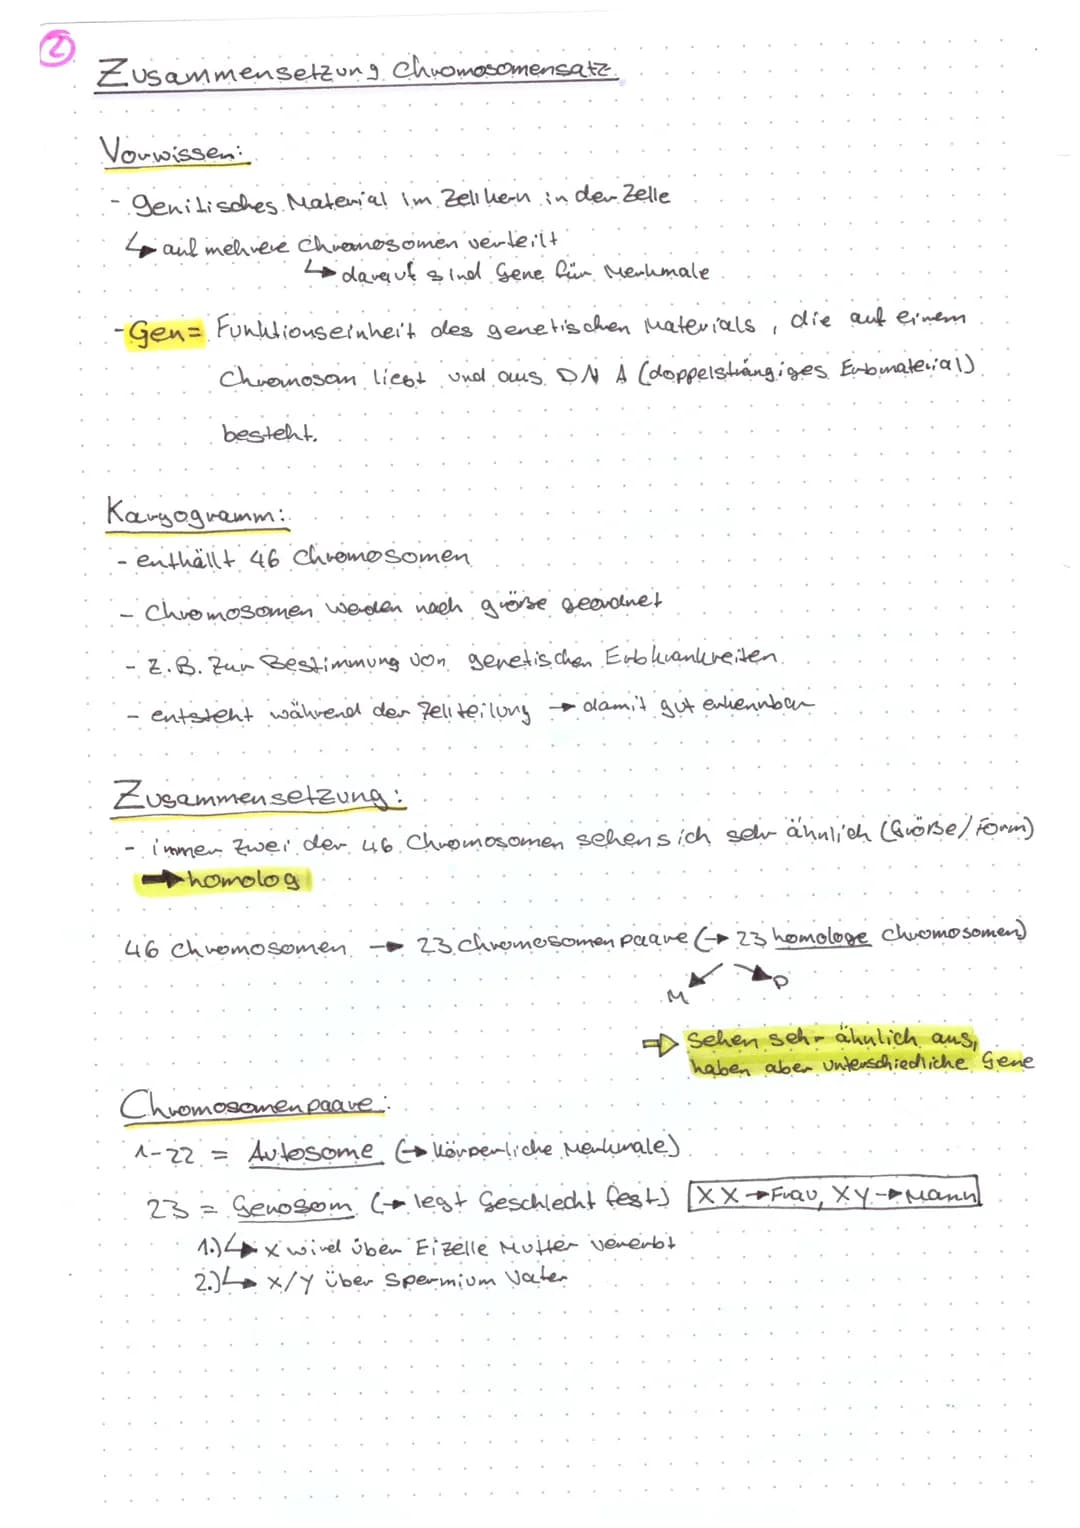 2
Zusammensetzung Chromosomensatz
Vorwissen:
- genitisches Material im Zellkern in der Zelle
↳ auf mehrere Chromosomen verteilt
↳ darauf sind Gene für Merkmale
- Gen = Funktionseinheit des genetischen Materials, die auf einem
Chromosom liegt und aus DNA (doppelsträngiges Erbmaterial)
besteht.
Karyogramm:
- enthällt 46 Chromosomen
- Chromosomen werden nach größe geordnet
- Z.B. Zur Bestimmung von genetischen Erbkrankreiten
- entsteht während der Zellteilung → damit gut erkennbar
Zusammensetzung:
- immer zwei der 46 Chromosomen sehen sich sehr ähnlich (Größe/Form)
→ homolog
46 Chromosomen → 23 Chromosomenpaare (→ 23 homologe Chromosomen)
M P
⇒ Sehen sehr ähnlich aus,
haben aber unterschiedliche Gene
Chromosomenpaare:
1-22 = Autosome (→ körperliche Merkmale)
23 = Genosom (→ legt Geschlecht fest) XX → Frau, XY → Mann
1.) ↳ X wird über Eizelle Mutter vererbt
2.) ↳ X/Y über Spermium Vater